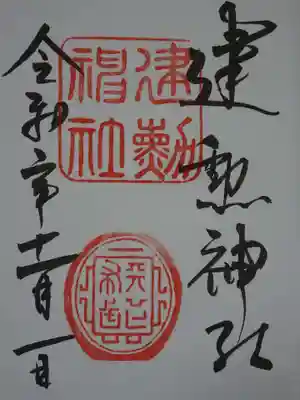 建勲神社
建勲
神社
令和元年十一月一日